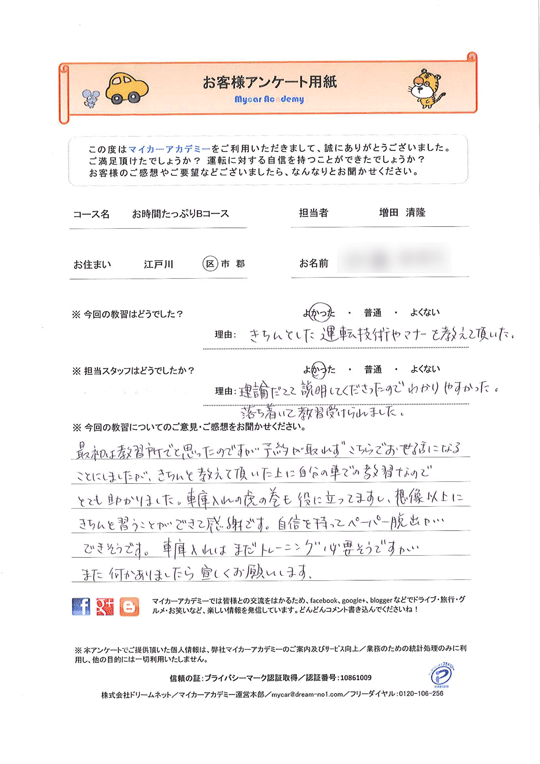 お客様アンケート用紙
Mycar Academy
この度はマイカーアカデミーをご利用いただきまして、誠にありがとうございました。
ご満足頂けたでしょうか？ 運転に対する自信を持つことができたでしょうか？
お客様のご感想やご要望などございましたら、なんなりとお聞かせください。
コース名 お時間たっぷりBコース 担当者 増田 清隆
お住まい 江戸川 区 市 郡 お名前
※ 今回の教習はどうでした？ よかった ・ 普通 ・ よくない
理由: きちんとした運転技術やマナーを教えて頂いた。
※ 担当スタッフはどうでしたか？ よかった ・ 普通 ・ よくない
理由: 理論だてて説明してくださったのでわかりやすかった。
落ち着いて教習受けられました。
※ 今回の教習についてのご意見・ご感想をお聞かせください。
最初は教習所でと思ったのですが予約が取れずこちらでお世話になる
ことにしましたが、きちんと教えて頂いた上に自分の車での教習なので
とても助かりました。車庫入れの虎の巻も役に立ってますし、想像以上に
きちんと習うことができて感謝です。自信を持ってペーパー脱出が…
できそうです。車庫入れはまだトレーニング必要そうですが…
また何かありましたら宜しくお願いします。
マイカーアカデミーでは皆様との交流をはかるため、facebook、google+、bloggerなどでドライブ・旅行・グ
ルメ・お笑いなど、楽しい情報を発信しています。どんどんコメント書き込んでくださいね！
※ 本アンケートでご提供頂いた個人情報は、弊社マイカーアカデミーのご案内及びサービス向上／業務のための統計処理のみに利
用し、他の目的には一切利用いたしません。
信頼の証：プライバシーマーク認証取得／認証番号：10861009
株式会社ドリームネット／マイカーアカデミー運営本部／mycar@dream-no1.com／フリーダイヤル：0120-106-256